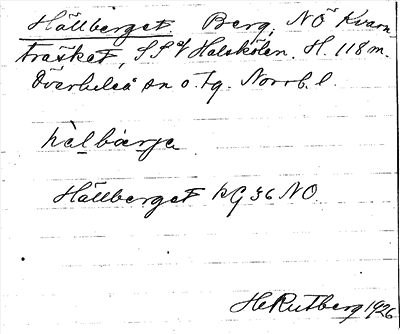 Hällberget Berg, NÖ Kvarn
träsket, SSV Halskölen. H. 118 m.
Överluleå sn o. tg. Norrb. l.
hàlbärje
Hällberget kG 36 NO
HRutberg 1926